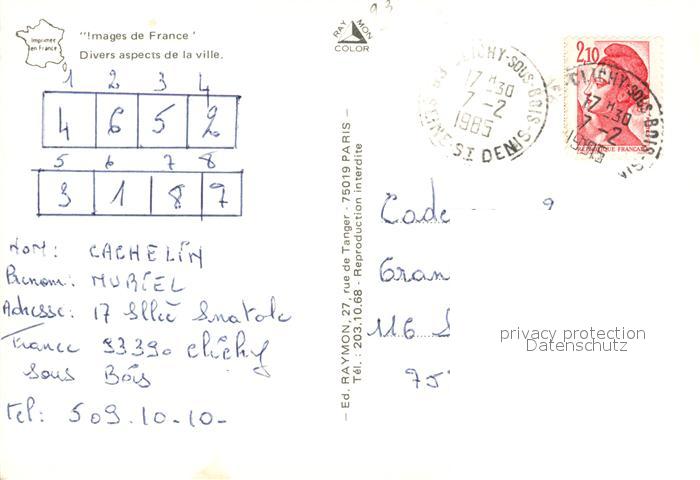 Imprimée en France
"Images de France'
Divers aspects de la ville.
1 2 3 4
4 6 5 2
5 6 7 8
3 1 8 7
Nom: CACHELIN
Prenom: MURIEL
Adresse: 17 Allée Anatole
France 93390 Clichy
Sous Bois
tel: 509.10-10-
RAYMON COLOR
– Ed. RAYMON, 27, rue de Tanger - 75019 PARIS –
– Tél. : 203.10.68 - Reproduction interdite
93 CLICHY-SOUS-BOIS
17 H 30
7-2
1985
SEINE ST DENIS
2,10
CLICHY-SOUS-BOIS
17 H 30
7-2
1985
Cade
Gran
116
75
privacy protection
Datenschutz